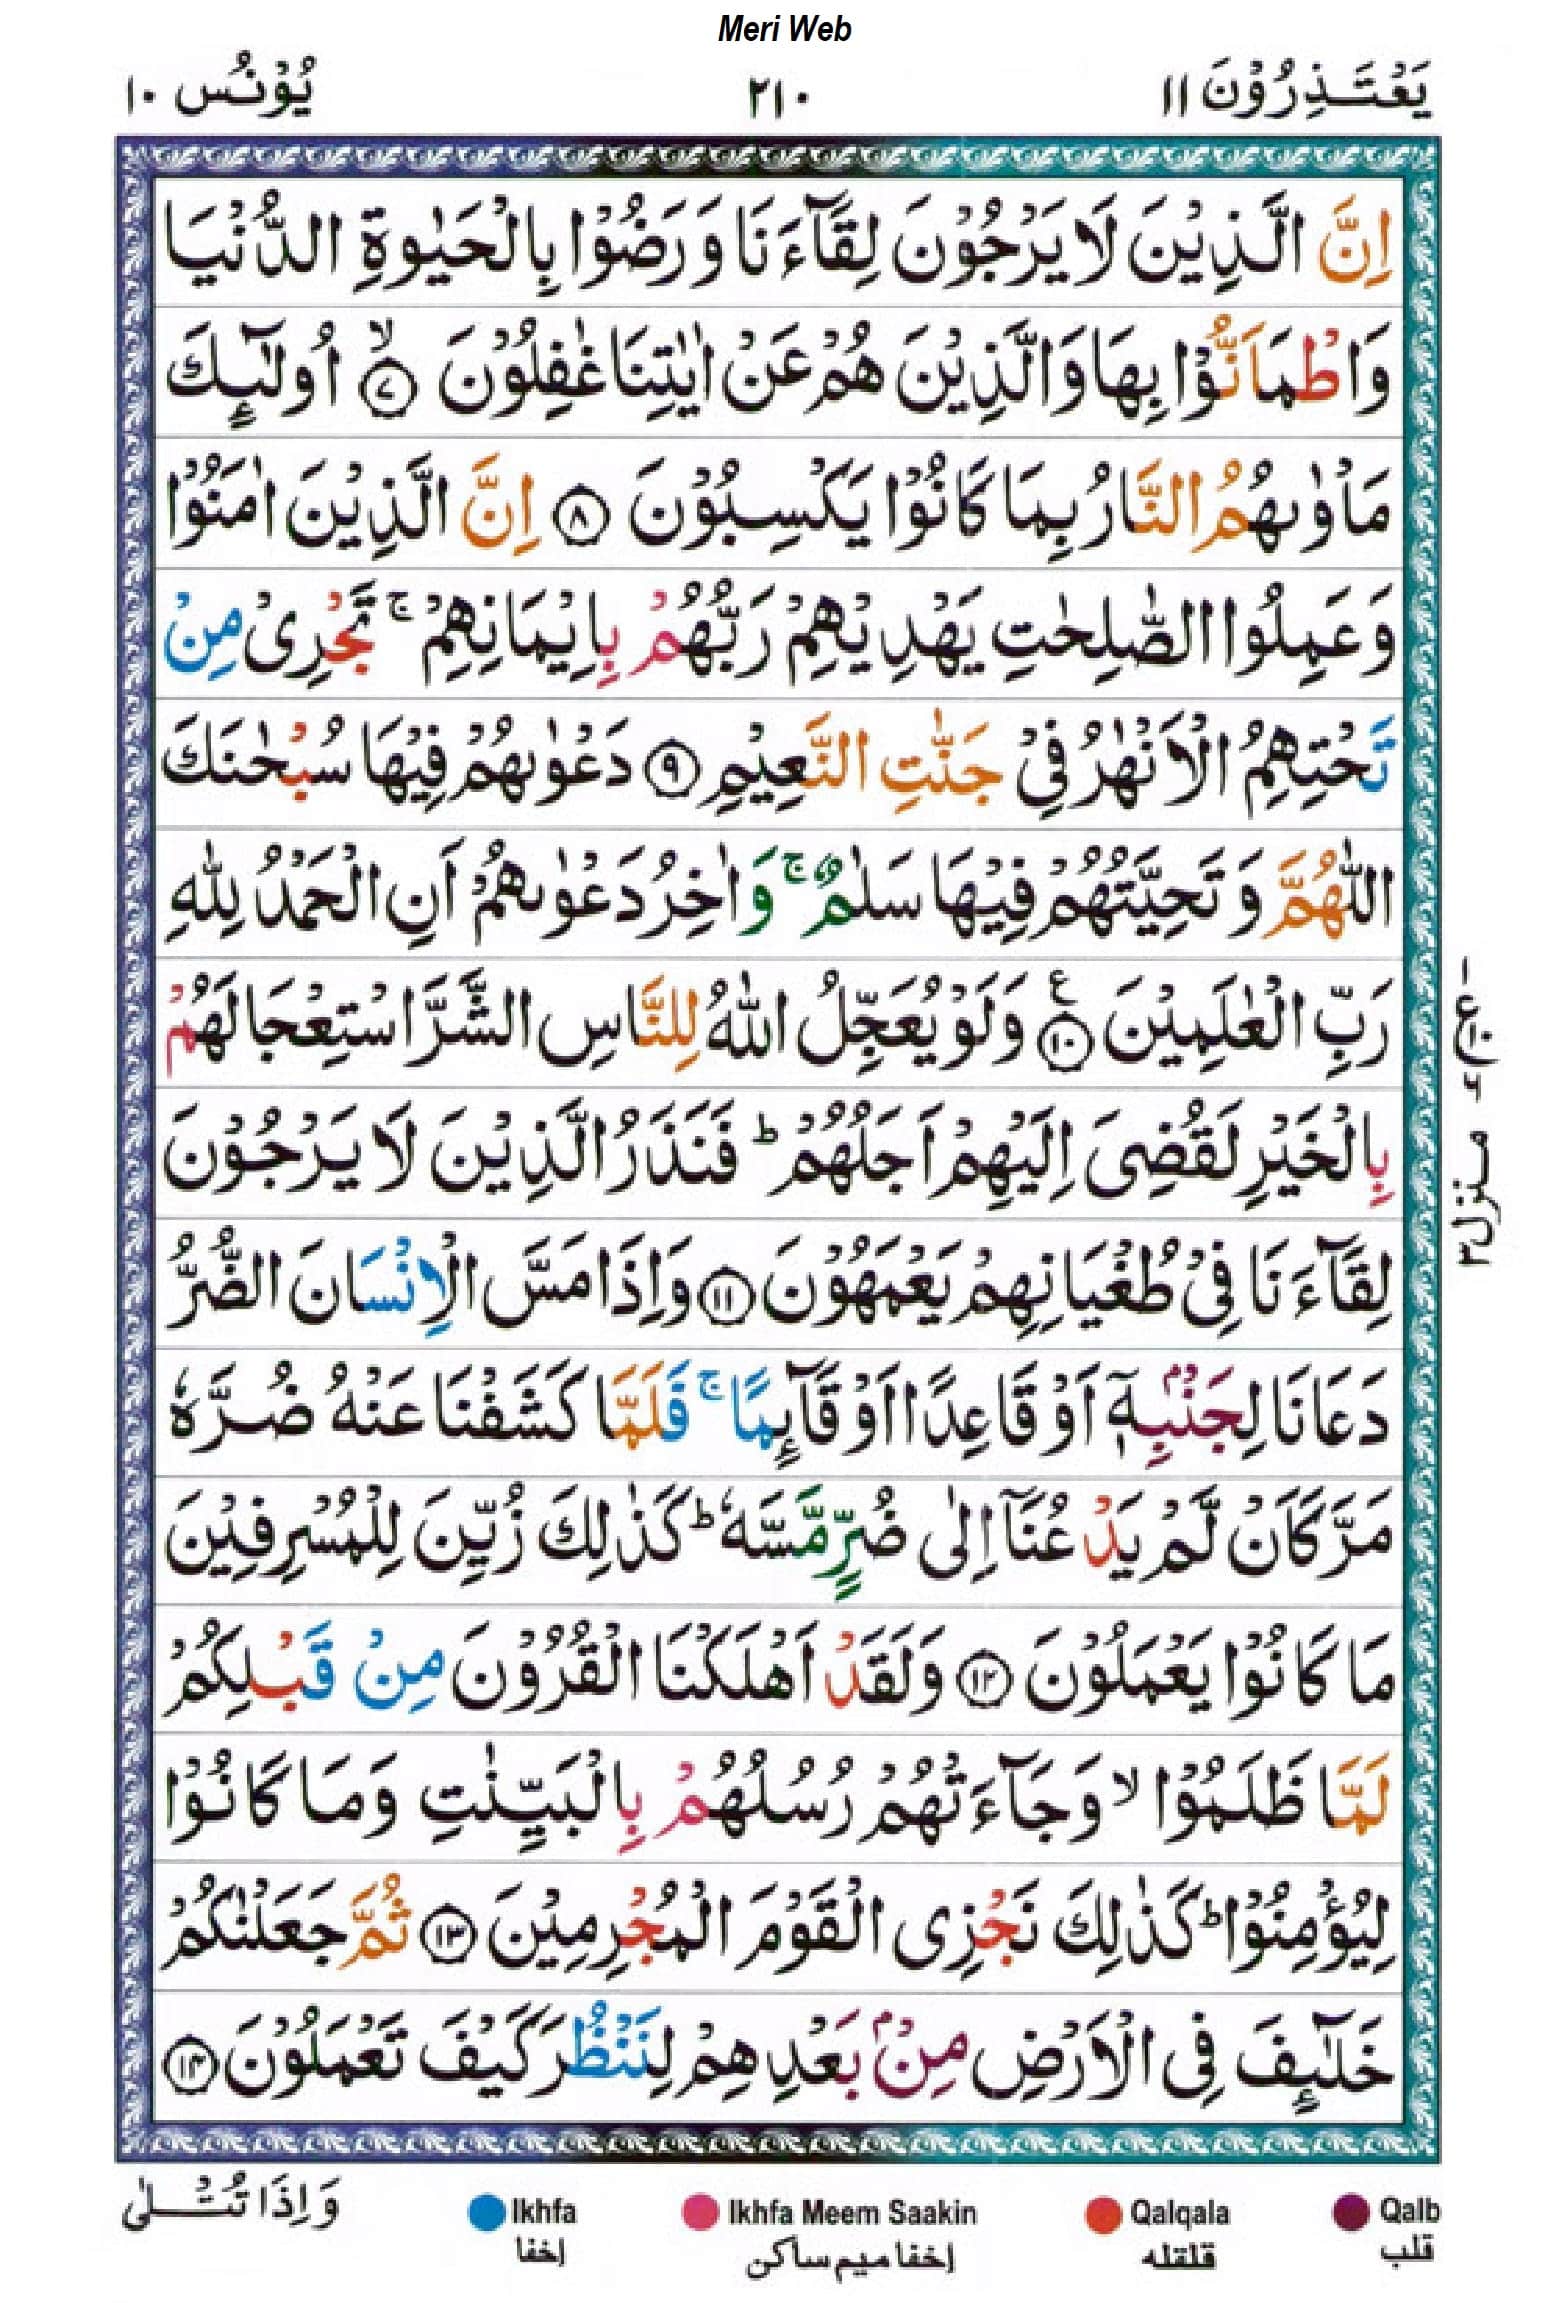 Meri Web
يَعْتَذِرُوْنَ ۱۱ ۲۱۰ يُوْنُس ۱۰
اِنَّ الَّذِيْنَ لَا يَرْجُوْنَ لِقَآءَنَا وَرَضُوْا بِالْحَيٰوةِ الدُّنْيَا
وَاطْمَاَنُّوْا بِهَا وَالَّذِيْنَ هُمْ عَنْ اٰيٰتِنَا غٰفِلُوْنَ ۙ‏﴿۷﴾ اُولٰٓٮِٕكَ
مَاْوٰٮهُمُ النَّارُ بِمَا كَانُوْا يَكْسِبُوْنَ ﴿۸﴾ اِنَّ الَّذِيْنَ اٰمَنُوْا
وَعَمِلُوا الصّٰلِحٰتِ يَهْدِيْهِمْ رَبُّهُمْ بِاِيْمَانِهِمْ ۚ تَجْرِىْ مِنْ
تَحْتِهِمُ الْاَنْهٰرُ فِىْ جَنّٰتِ النَّعِيْمِ ﴿۹﴾ دَعْوٰٮهُمْ فِيْهَا سُبْحٰنَكَ
اللّٰهُمَّ وَ تَحِيَّتُهُمْ فِيْهَا سَلٰمٌ ۚ وَاٰخِرُ دَعْوٰٮهُمْ اَنِ الْحَمْدُ لِلّٰهِ
رَبِّ الْعٰلَمِيْنَ ﴿۱۰﴾ ع وَلَوْ يُعَجِّلُ اللّٰهُ لِلنَّاسِ الشَّرَّ اسْتِعْجَالَهُمْ
بِالْخَيْرِ لَقُضِىَ اِلَيْهِمْ اَجَلُهُمْ ؕ فَنَذَرُ الَّذِيْنَ لَا يَرْجُوْنَ
لِقَآءَنَا فِىْ طُغْيَانِهِمْ يَعْمَهُوْنَ ﴿۱۱﴾ وَاِذَا مَسَّ الْاِنْسَانَ الضُّرُّ
دَعَانَا لِجَنْۢبِهٖۤ اَوْ قَاعِدًا اَوْ قَآٮِٕمًا ۚ فَلَمَّا كَشَفْنَا عَنْهُ ضُرَّهٗ
مَرَّ كَاَنْ لَّمْ يَدْعُنَاۤ اِلٰى ضُرٍّ مَّسَّهٗ ؕ كَذٰلِكَ زُيِّنَ لِلْمُسْرِفِيْنَ
مَا كَانُوْا يَعْمَلُوْنَ ﴿۱۲﴾ وَلَقَدْ اَهْلَكْنَا الْقُرُوْنَ مِنْ قَبْلِكُمْ
لَمَّا ظَلَمُوْا ۙ وَجَآءَتْهُمْ رُسُلُهُمْ بِالْبَيِّنٰتِ وَمَا كَانُوْا
لِيُؤْمِنُوْا ؕ كَذٰلِكَ نَجْزِى الْقَوْمَ الْمُجْرِمِيْنَ ﴿۱۳﴾ ثُمَّ جَعَلْنٰكُمْ
خَلٰٓٮِٕفَ فِى الْاَرْضِ مِنْۢ بَعْدِهِمْ لِنَنْظُرَ كَيْفَ تَعْمَلُوْنَ ﴿۱۴﴾
منزل۳
وَاِذَا تُتْلٰى
Ikhfa Ikhfa Meem Saakin Qalqala Qalb
إخفا إخفا ميم ساكن قلقله قلب